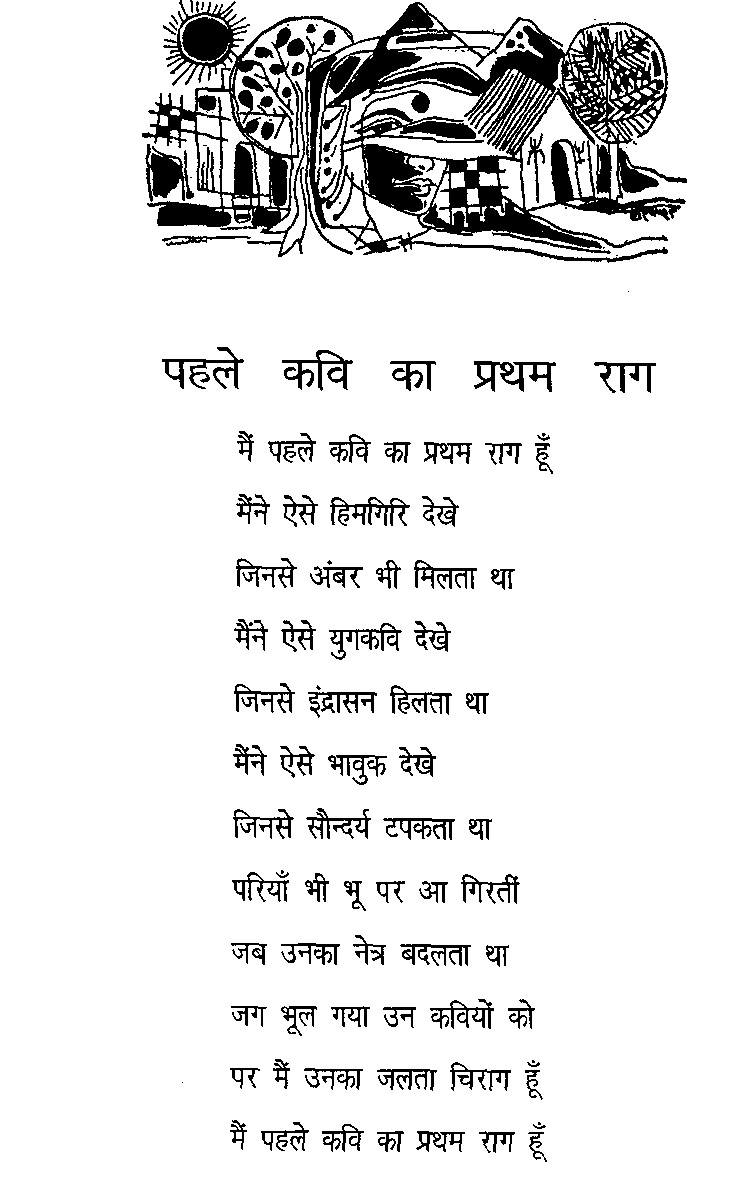 पहले कवि का प्रथम राग
मैं पहले कवि का प्रथम राग हूँ
मैंने ऐसे हिमगिरि देखे
जिनसे अंबर भी मिलता था
मैंने ऐसे युगकवि देखे
जिनसे इंद्रासन हिलता था
मैंने ऐसे भावुक देखे
जिनसे सौन्दर्य टपकता था
परियाँ भी भू पर आ गिरतीं
जब उनका नेत्र बदलता था
जग भूल गया उन कवियों को
पर मैं उनका जलता चिराग हूँ
मैं पहले कवि का प्रथम राग हूँ